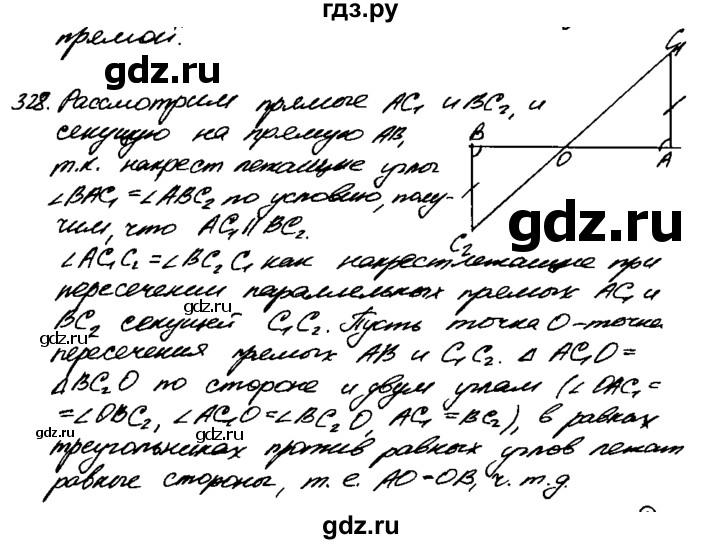 гдз.ру
прямой.
gdz.ru
328. Рассмотрим прямые AC₁ и BC₂, и
секущую на прямую AB,
т.к. накрест лежащие углы
∠BAC₁ = ∠ABC₂ по условию, полу-
чим, что AC₁ ∥ BC₂.
C₁
B
O
A
C₂
gdz.ru
∠AC₁C₂ = ∠BC₂C₁ как накрестлежащие при
пересечении параллельных прямых AC₁ и
gdz.ru
BC₂ секущей C₁C₂. Пусть точка O – точка
пересечения прямых AB и C₁C₂. △ AC₁O =
△BC₂O по стороне и двум углам (∠OAC₁ =
= ∠OBC₂, ∠AC₁O = ∠BC₂O, AC₁ = BC₂), в равных
gdz.ru
треугольниках против равных углов лежат
равные стороны, т.е. AO = OB, ч.т.д.
gdz.ru